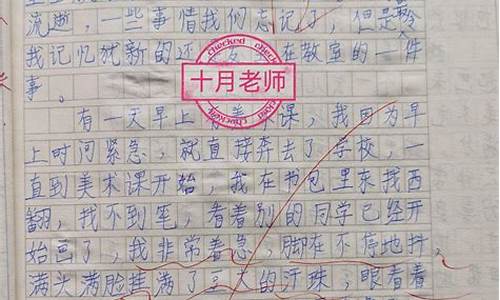 流逝，一些事情我们忘记了，但是令
我记忆犹新的还 在教室的一件
事。
checked
十月老师
checked
有一天早上有美术课，我因为早
上时间紧急，就直接奔去了学校，一
直到美术课开始，我在书包里东找西
翻，找不到笔，看着别的同学已经开
始画了，我非常着急，脚在不停地抖，
满头满脸挂满了豆大的汗珠，眼看着